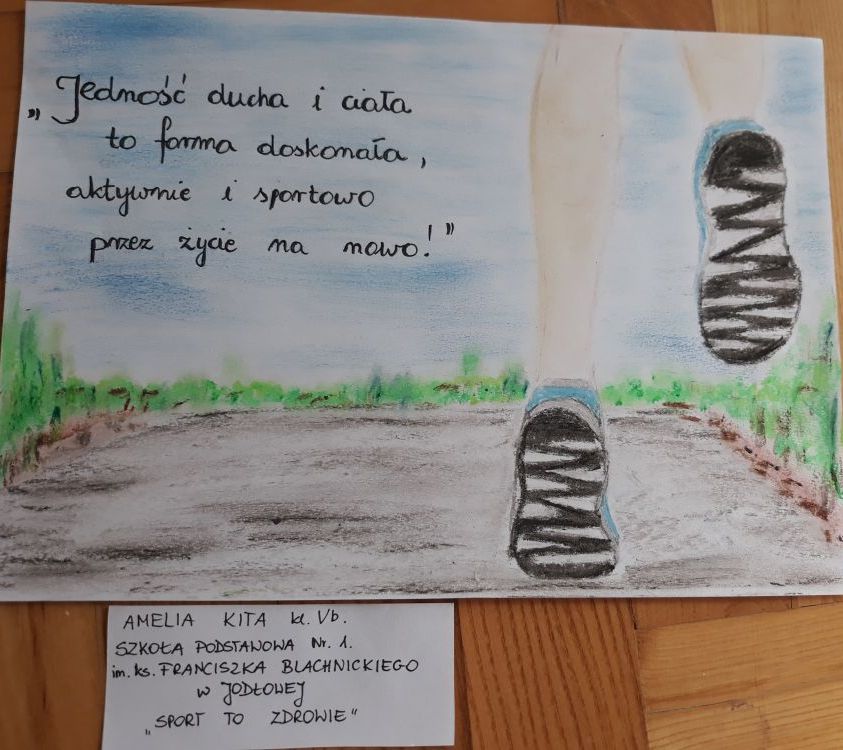 „Jedność ducha i ciała
to forma doskonała,
aktywnie i sportowo
przez życie na nowo!”
AMELIA KITA kl. Vb.
SZKOŁA PODSTAWOWA Nr. 1.
im. ks. FRANCISZKA BLACHNICKIEGO
w JODŁOWEJ
„SPORT TO ZDROWIE”